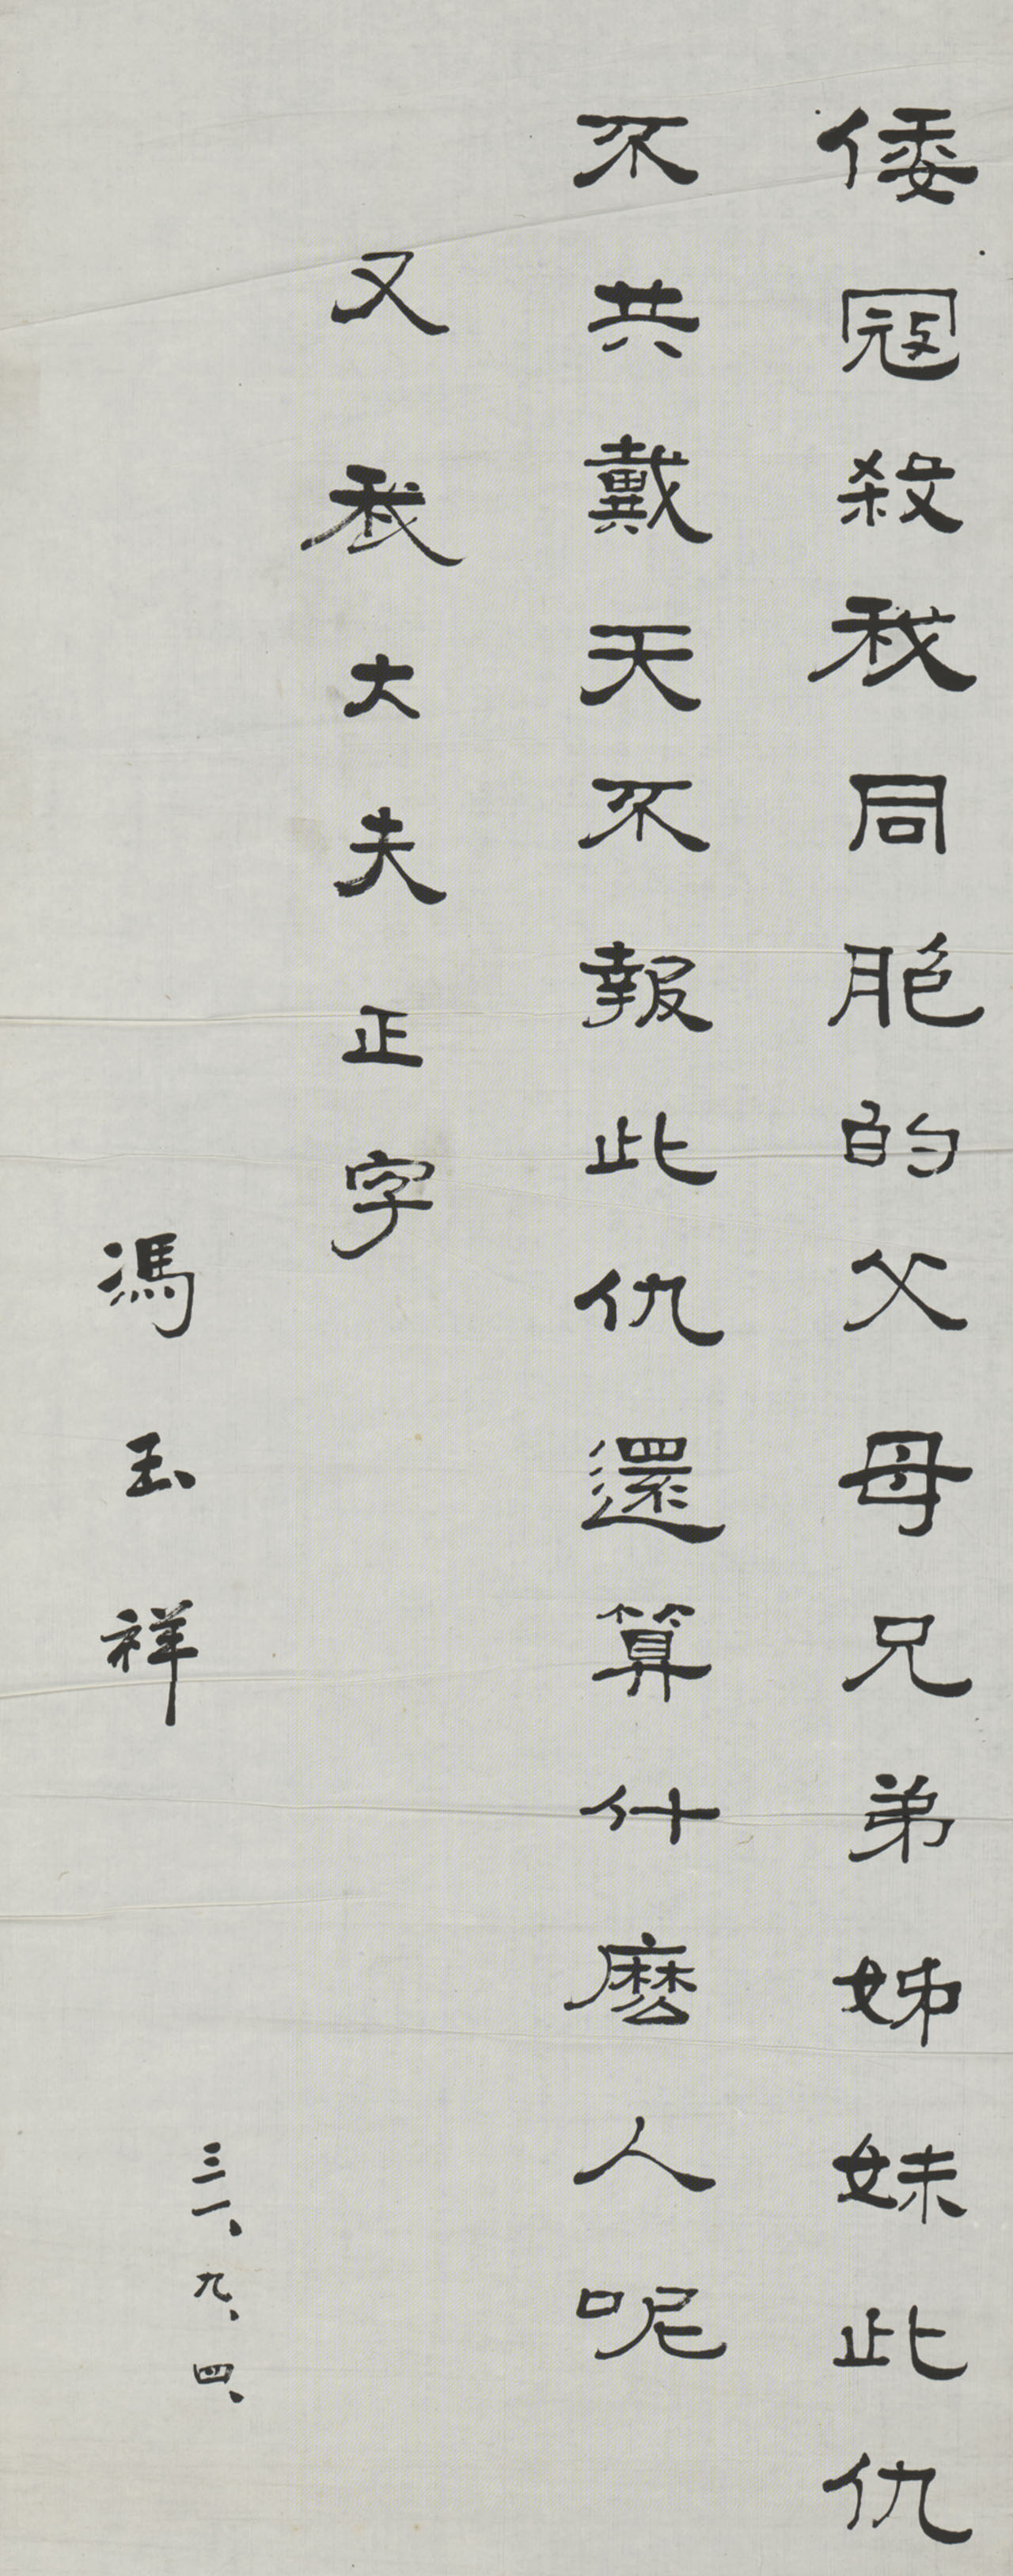 倭冦殺我同胞的父母兄弟姊妹此仇
不共戴天不報此仇還算什麽人呢
又我大夫正字
馮玉祥
三一、九、四、